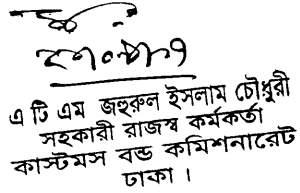 এ টি এম জহুরুল ইসলাম চৌধুরী
সহকারী রাজস্ব কর্মকর্তা
কাস্টমস বন্ড কমিশনারেট
ঢাকা ।